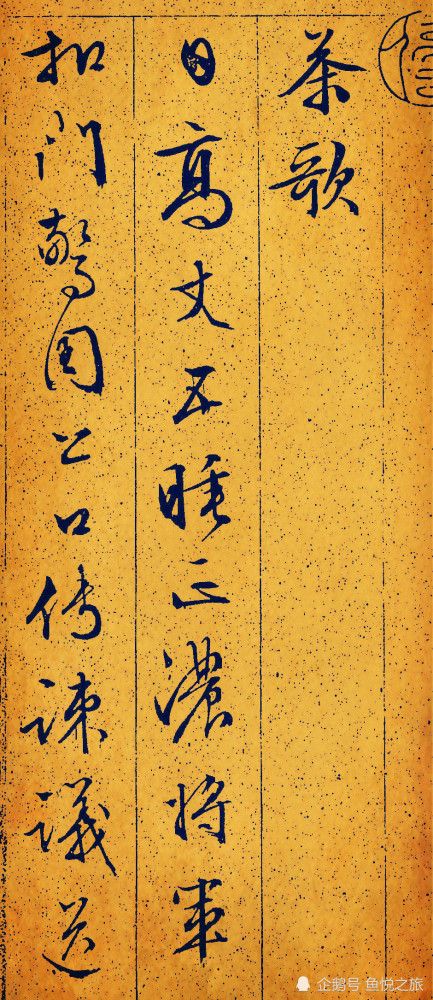 茶歌
日高丈五睡正濃將軍
扣門驚周公口傳諫議送
企鹅号 鱼悦之旅